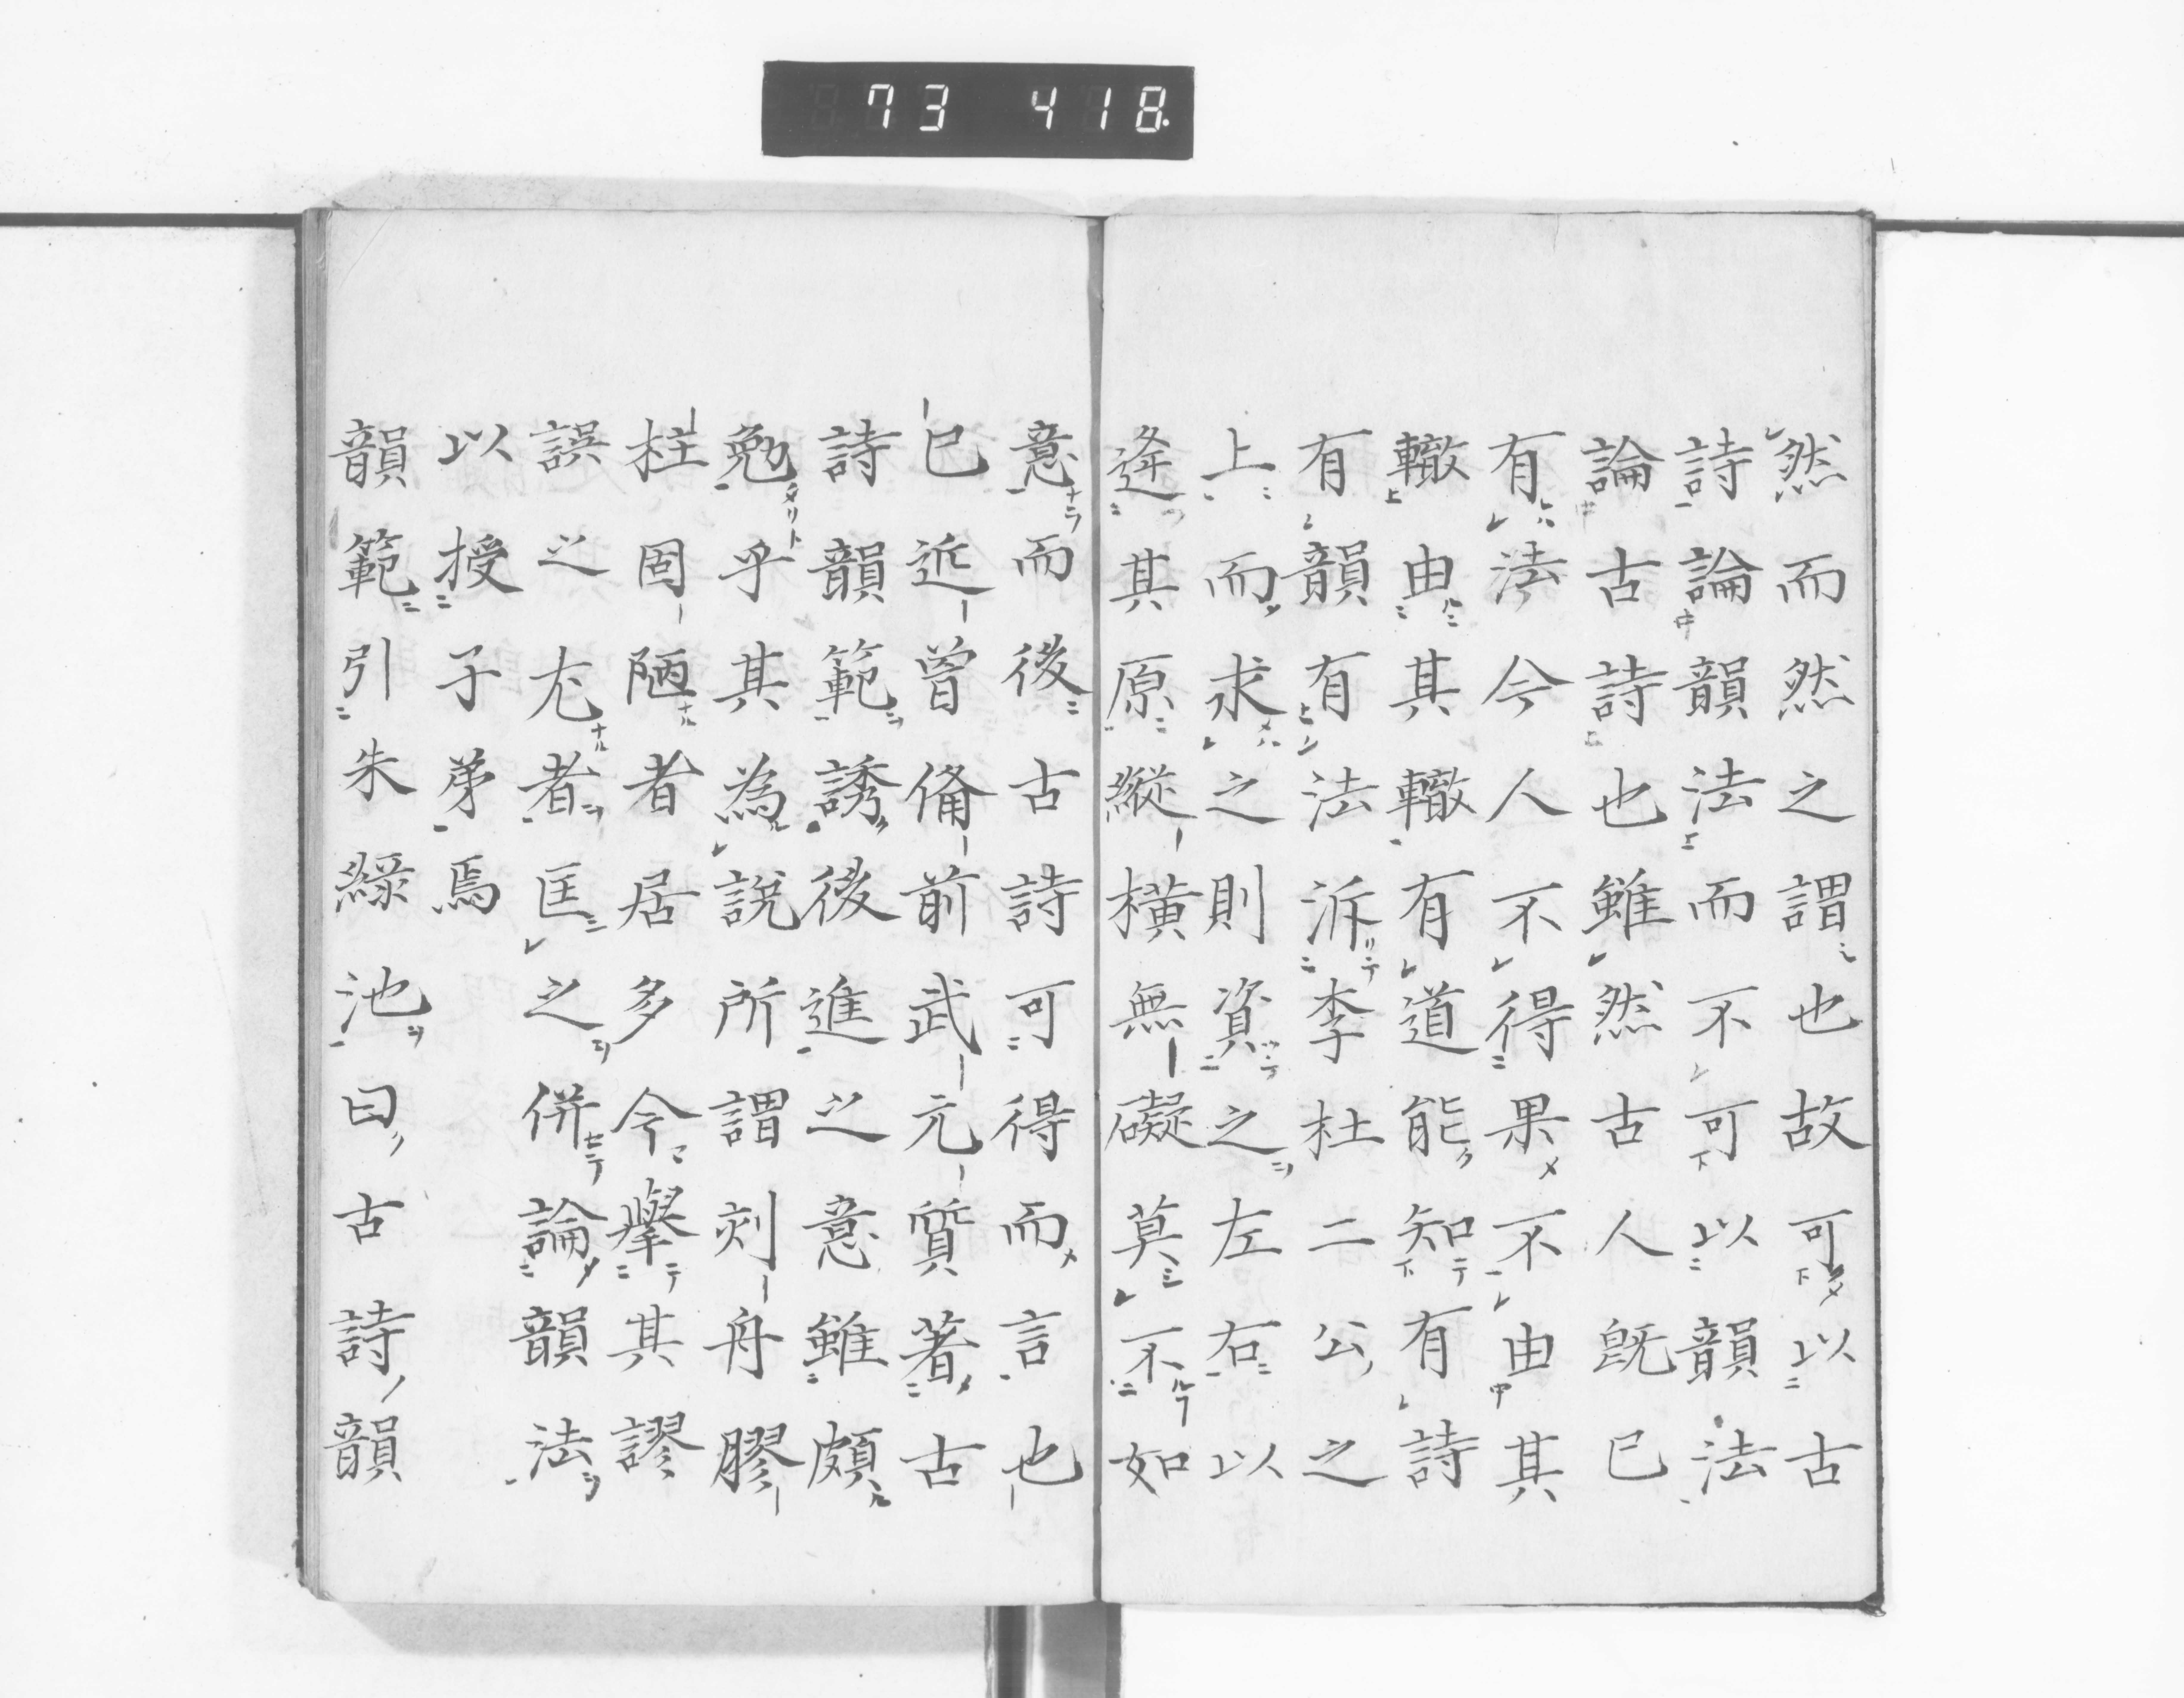 73 418
然而然之謂也故可以古
詩論韻法而不可以韻法
論古詩也雖然古人既已
有法今人不得果不由其
轍由其轍有道能知有詩
有韻有法泝李杜二公之
上而求之則資之左右以
逢其原縱橫無礙莫不如
意而後古詩可得而言也
已近曽備前武元質著古
詩韻範誘後進之意雖頗
勉乎其為說所謂刻舟膠
柱固陋者居多今擧其謬
誤之尤者匡之併論韻法
以授子弟焉
韻範引朱綠池曰古詩韻